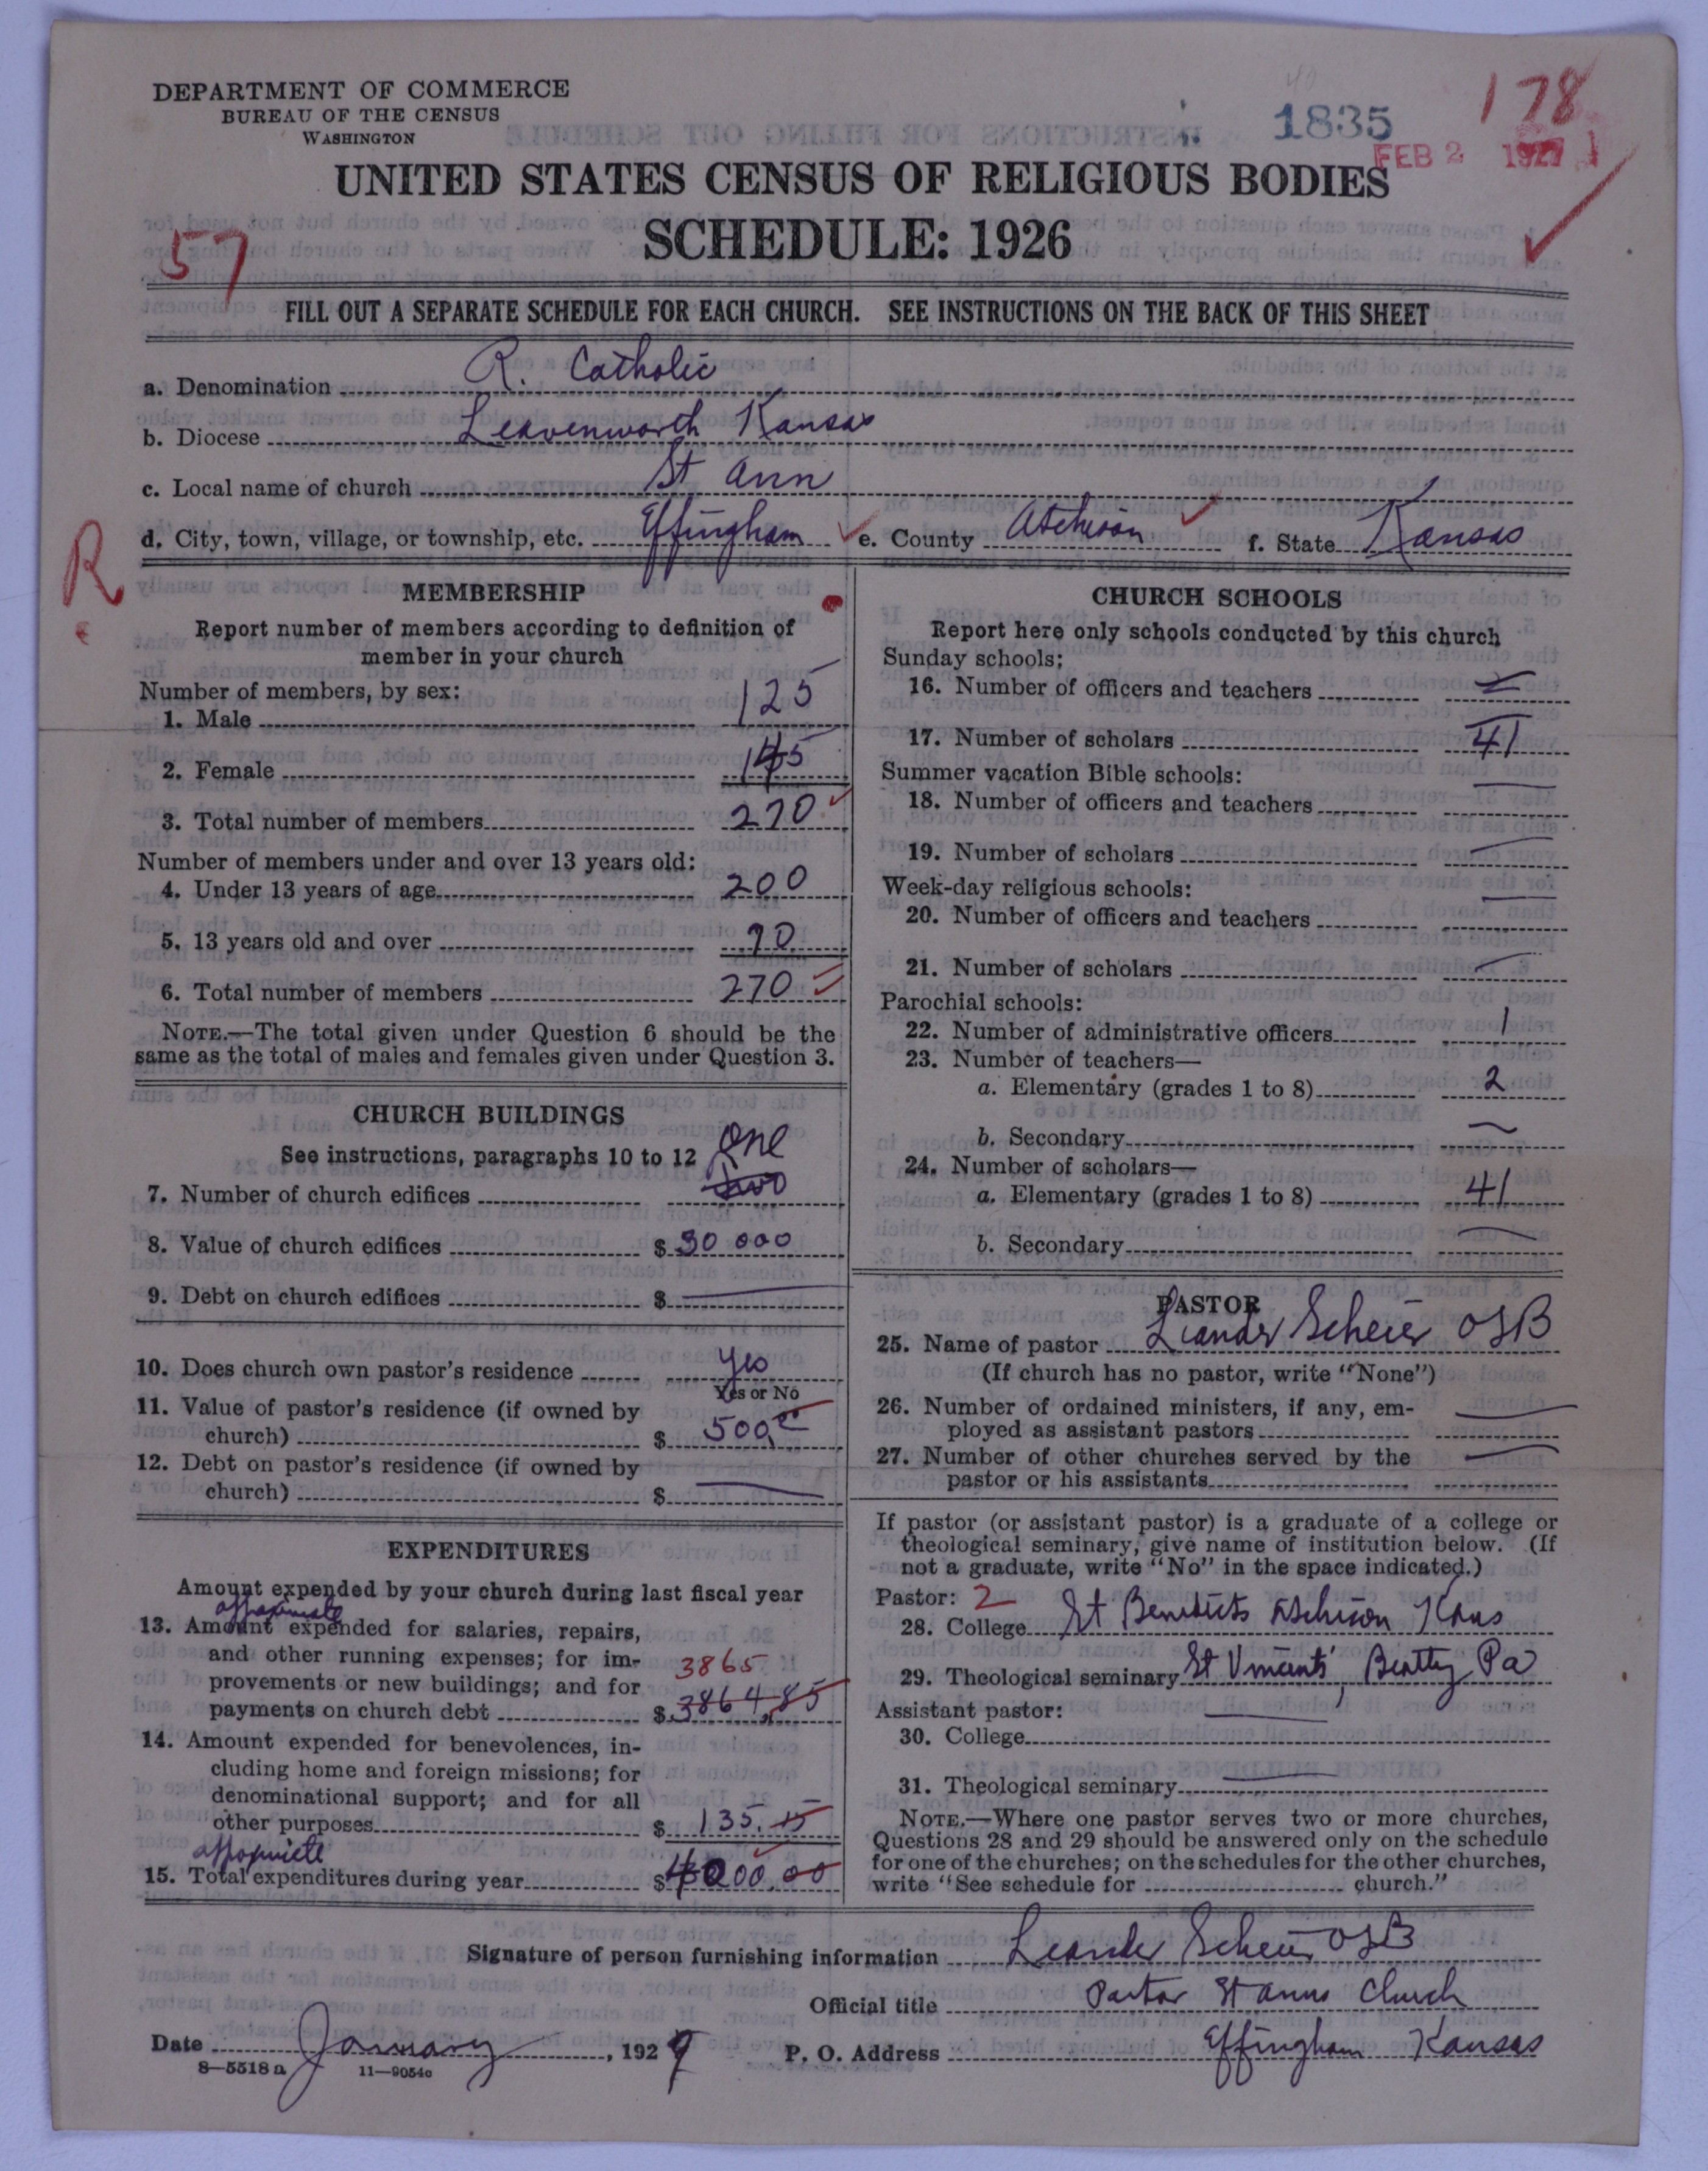 DEPARTMENT OF COMMERCE
BUREAU OF THE CENSUS
WASHINGTON
1835
178
FEB 2 1927
UNITED STATES CENSUS OF RELIGIOUS BODIES
SCHEDULE: 1926
57
FILL OUT A SEPARATE SCHEDULE FOR EACH CHURCH. SEE INSTRUCTIONS ON THE BACK OF THIS SHEET
a. Denomination R. Catholic
b. Diocese Leavenworth Kansas
c. Local name of church St Ann
d. City, town, village, or township, etc. Effingham e. County Atchison f. State Kansas
R
MEMBERSHIP
Report number of members according to definition of
member in your church
Number of members, by sex:
1. Male 125
2. Female 145
3. Total number of members 270
Number of members under and over 13 years old:
4. Under 13 years of age 200
5. 13 years old and over 70
6. Total number of members 270
NOTE.—The total given under Question 6 should be the
same as the total of males and females given under Question 3.
CHURCH BUILDINGS
See instructions, paragraphs 10 to 12 One
7. Number of church edifices two
8. Value of church edifices $ 30 000
9. Debt on church edifices $
10. Does church own pastor's residence yes
Yes or No
11. Value of pastor's residence (if owned by
church) $
12. Debt on pastor's residence (if owned by
church) $
EXPENDITURES
Amount expended by your church during last fiscal year
approximate
13. Amount expended for salaries, repairs,
and other running expenses; for im-
3865
provements or new buildings; and for
payments on church debt $ 3864.85
14. Amount expended for benevolences, in-
cluding home and foreign missions; for
denominational support; and for all
other purposes $ 135.15
15. Total expenditures during year $ 4000.00
CHURCH SCHOOLS
Report here only schools conducted by this church
Sunday schools:
16. Number of officers and teachers
17. Number of scholars 41
Summer vacation Bible schools:
18. Number of officers and teachers
19. Number of scholars
Week-day religious schools:
20. Number of officers and teachers
21. Number of scholars
Parochial schools:
22. Number of administrative officers 1
23. Number of teachers—
a. Elementary (grades 1 to 8) 2
b. Secondary
24. Number of scholars—
a. Elementary (grades 1 to 8) 41
b. Secondary
PASTOR
25. Name of pastor Leander Scheier OSB
(If church has no pastor, write "None")
26. Number of ordained ministers, if any, em-
ployed as assistant pastors
27. Number of other churches served by the
pastor or his assistants
If pastor (or assistant pastor) is a graduate of a college or
theological seminary, give name of institution below. (If
not a graduate, write "No" in the space indicated.)
Pastor: 2
28. College St Benedicts Atchison Kans
29. Theological seminary St Vincents', Beatty Pa
Assistant pastor:
30. College
31. Theological seminary
NOTE.—Where one pastor serves two or more churches,
Questions 28 and 29 should be answered only on the schedule
for one of the churches; on the schedules for the other churches,
write "See schedule for church."
Signature of person furnishing information Leander Scheier OSB
Official title Pastor St Anns Church
Date January, 1927 P. O. Address Effingham Kansas
8—5518a 11—9054c